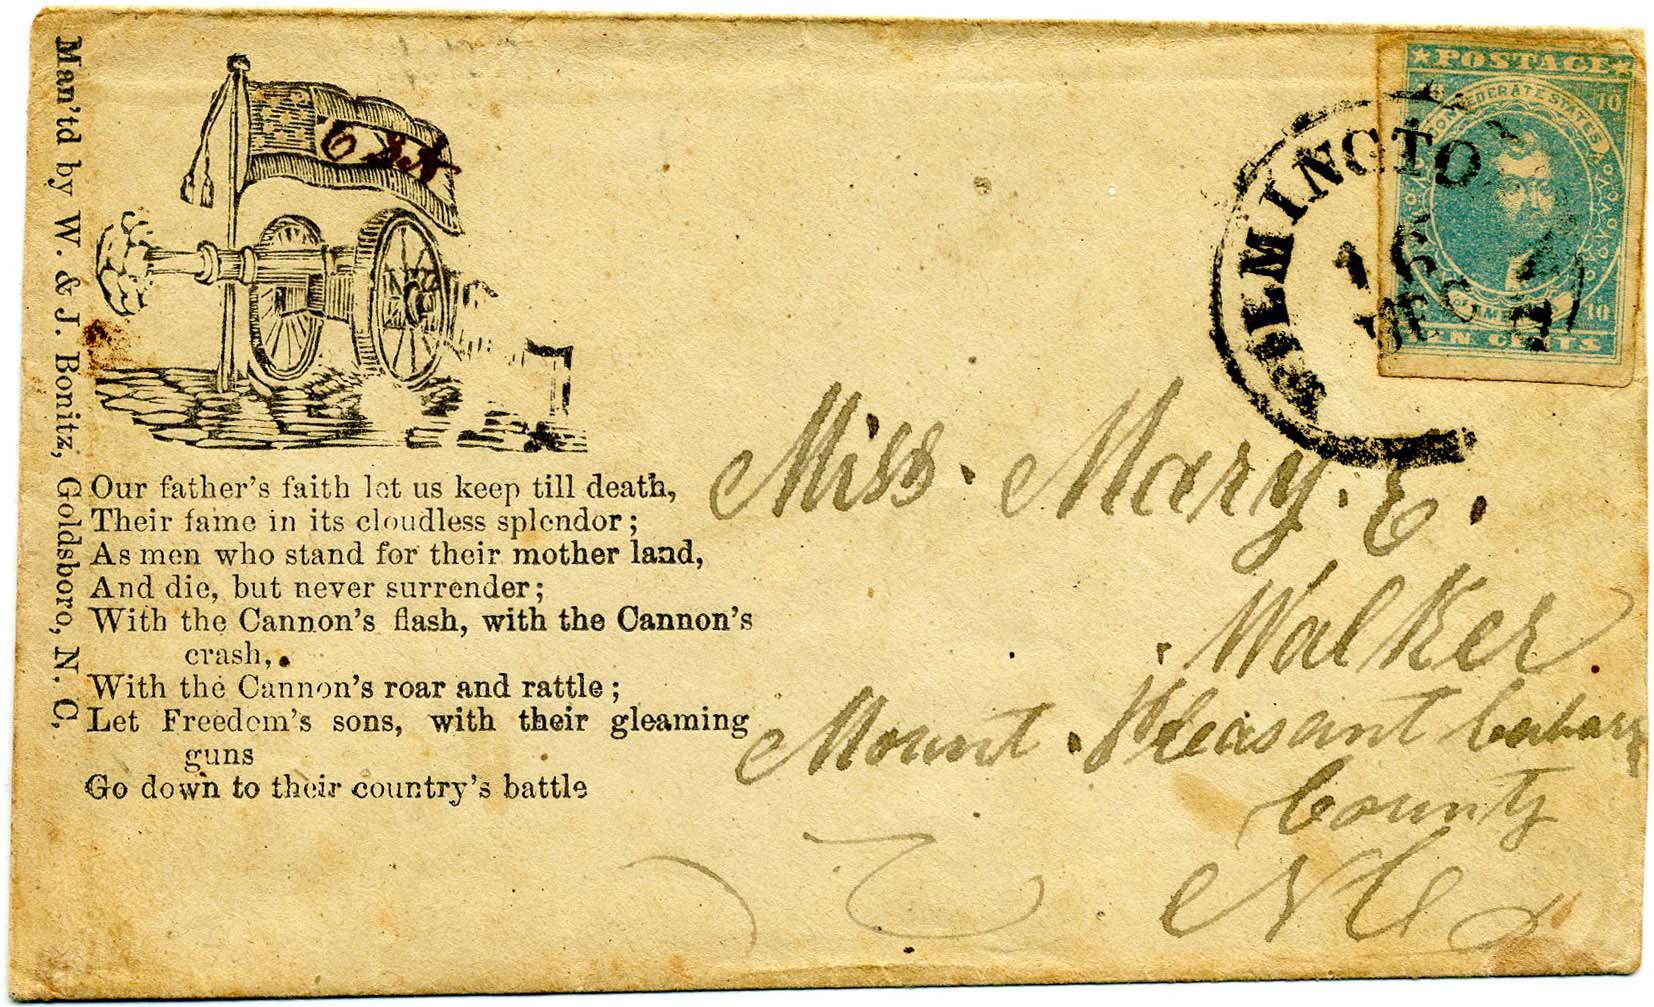 Man'td by W. & J. Bonitz, Goldsboro, N. C,
Our father's faith let us keep till death,
Their fame in its cloudless splendor;
As men who stand for their mother land,
And die, but never surrender;
With the Cannon's flash, with the Cannon's
crash,
With the Cannon's roar and rattle;
Let Freedom's sons, with their gleaming
guns
Go down to their country's battle
POSTAGE
CONFEDERATE STATES
10 10
TEN CENTS
WILMINGTO
DEC
Miss. Mary. E.
Walker
Mount Pleasant Cabarr
County
NC